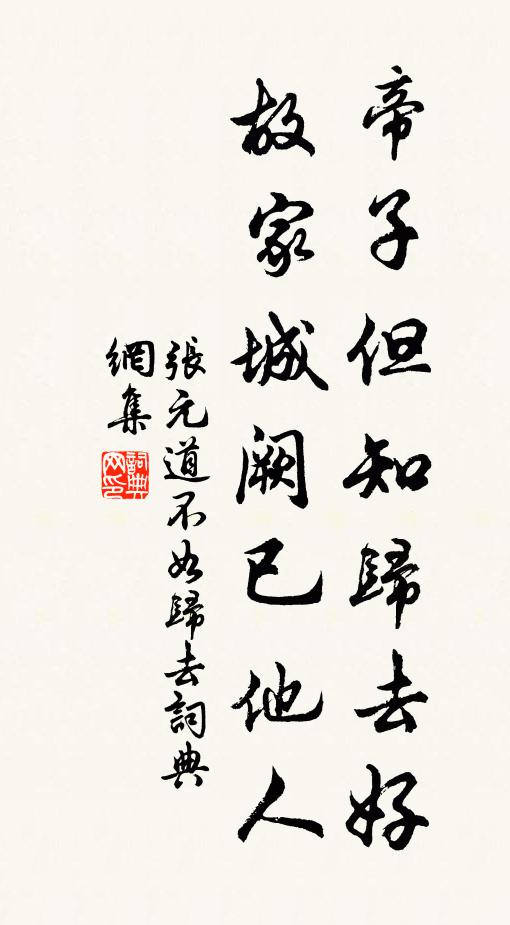 帝子但知歸去好
故家城闕已他人
張元道不如歸去詞典
網集
詞典網印